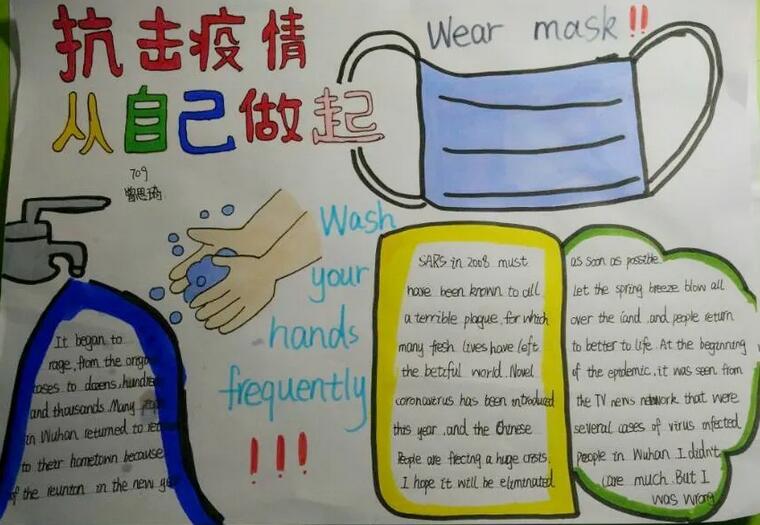 抗击疫情
从自己做起
Wear mask!!
709
曾思琦
Wash
your
hands
frequently
!!!
SARS in 2008 must
have been known to all
a terrible plague, for which
many fresh lives have left
the betiful world. Novel
coronavirus has been introduced
this year, and the Chinese
People are flecting a huge crisis.
I hope it will be eliminated
as soon as possible.
Let the spring breeze blow all
over the land, and people return
to better to life. At the beginning
of the epidemic, it was seen from
the TV news network that were
several cases of virus infected
people in Wuhan. I didn't
care much. But I
was wrong
It began to
rage, from the
cases to dozens, hundreds
and thousands. Many
in Wuhan returned to
to their hometown because
of the reunion in the new